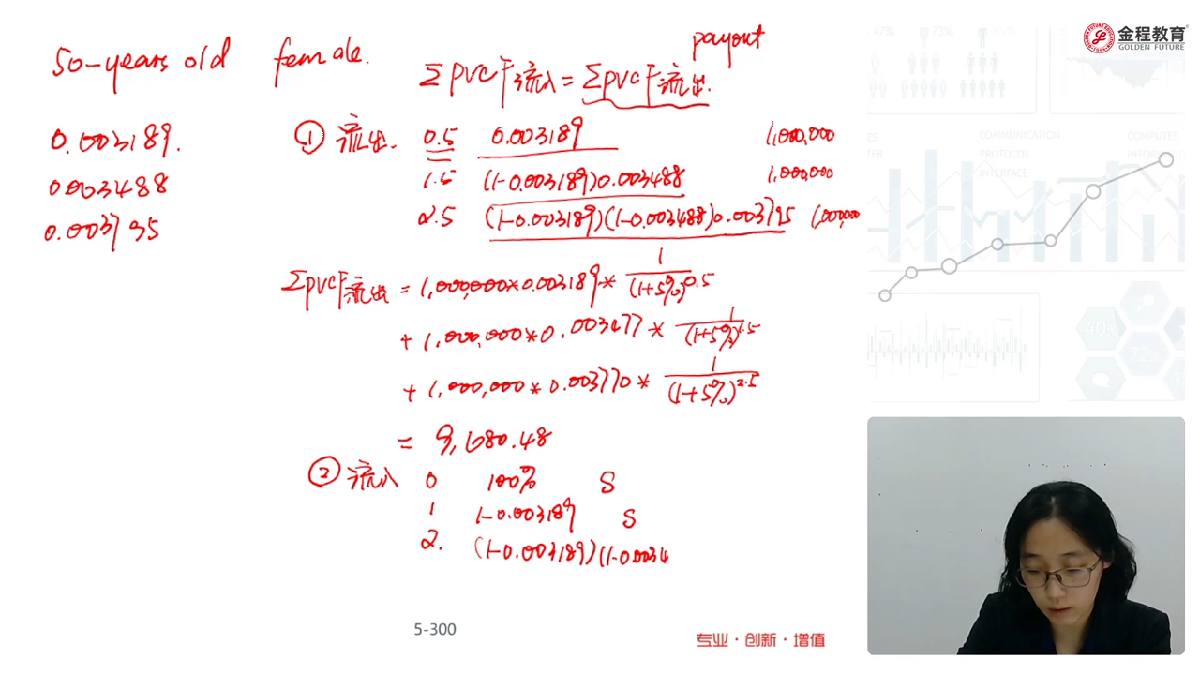 金程教育
GOLDEN FUTURE
50-years old female.
payout
ΣPVCF流入 = ΣPVCF流出.
0.003189.
0.003488
0.003795
① 流出. 0.5 0.003189 1,000,000
1.5 (1-0.003189)0.003488 1,000,000
2.5 (1-0.003189)(1-0.003488)0.003795 1,000,000
ΣPVCF流出 = 1,000,000*0.003189* 1/(1+5%)^0.5
+ 1,000,000*0.003477* 1/(1+5%)^1.5
+ 1,000,000*0.003770* 1/(1+5%)^2.5
= 9,680.48
② 流入 0 100% S
1 1-0.003189 S
2. (1-0.003189)(1-0.0034
5-300
专业·创新·增值
47%
73%
COMMUNICATION
PROTOCOL
INTERFACE
COMPUTER
40%
72%